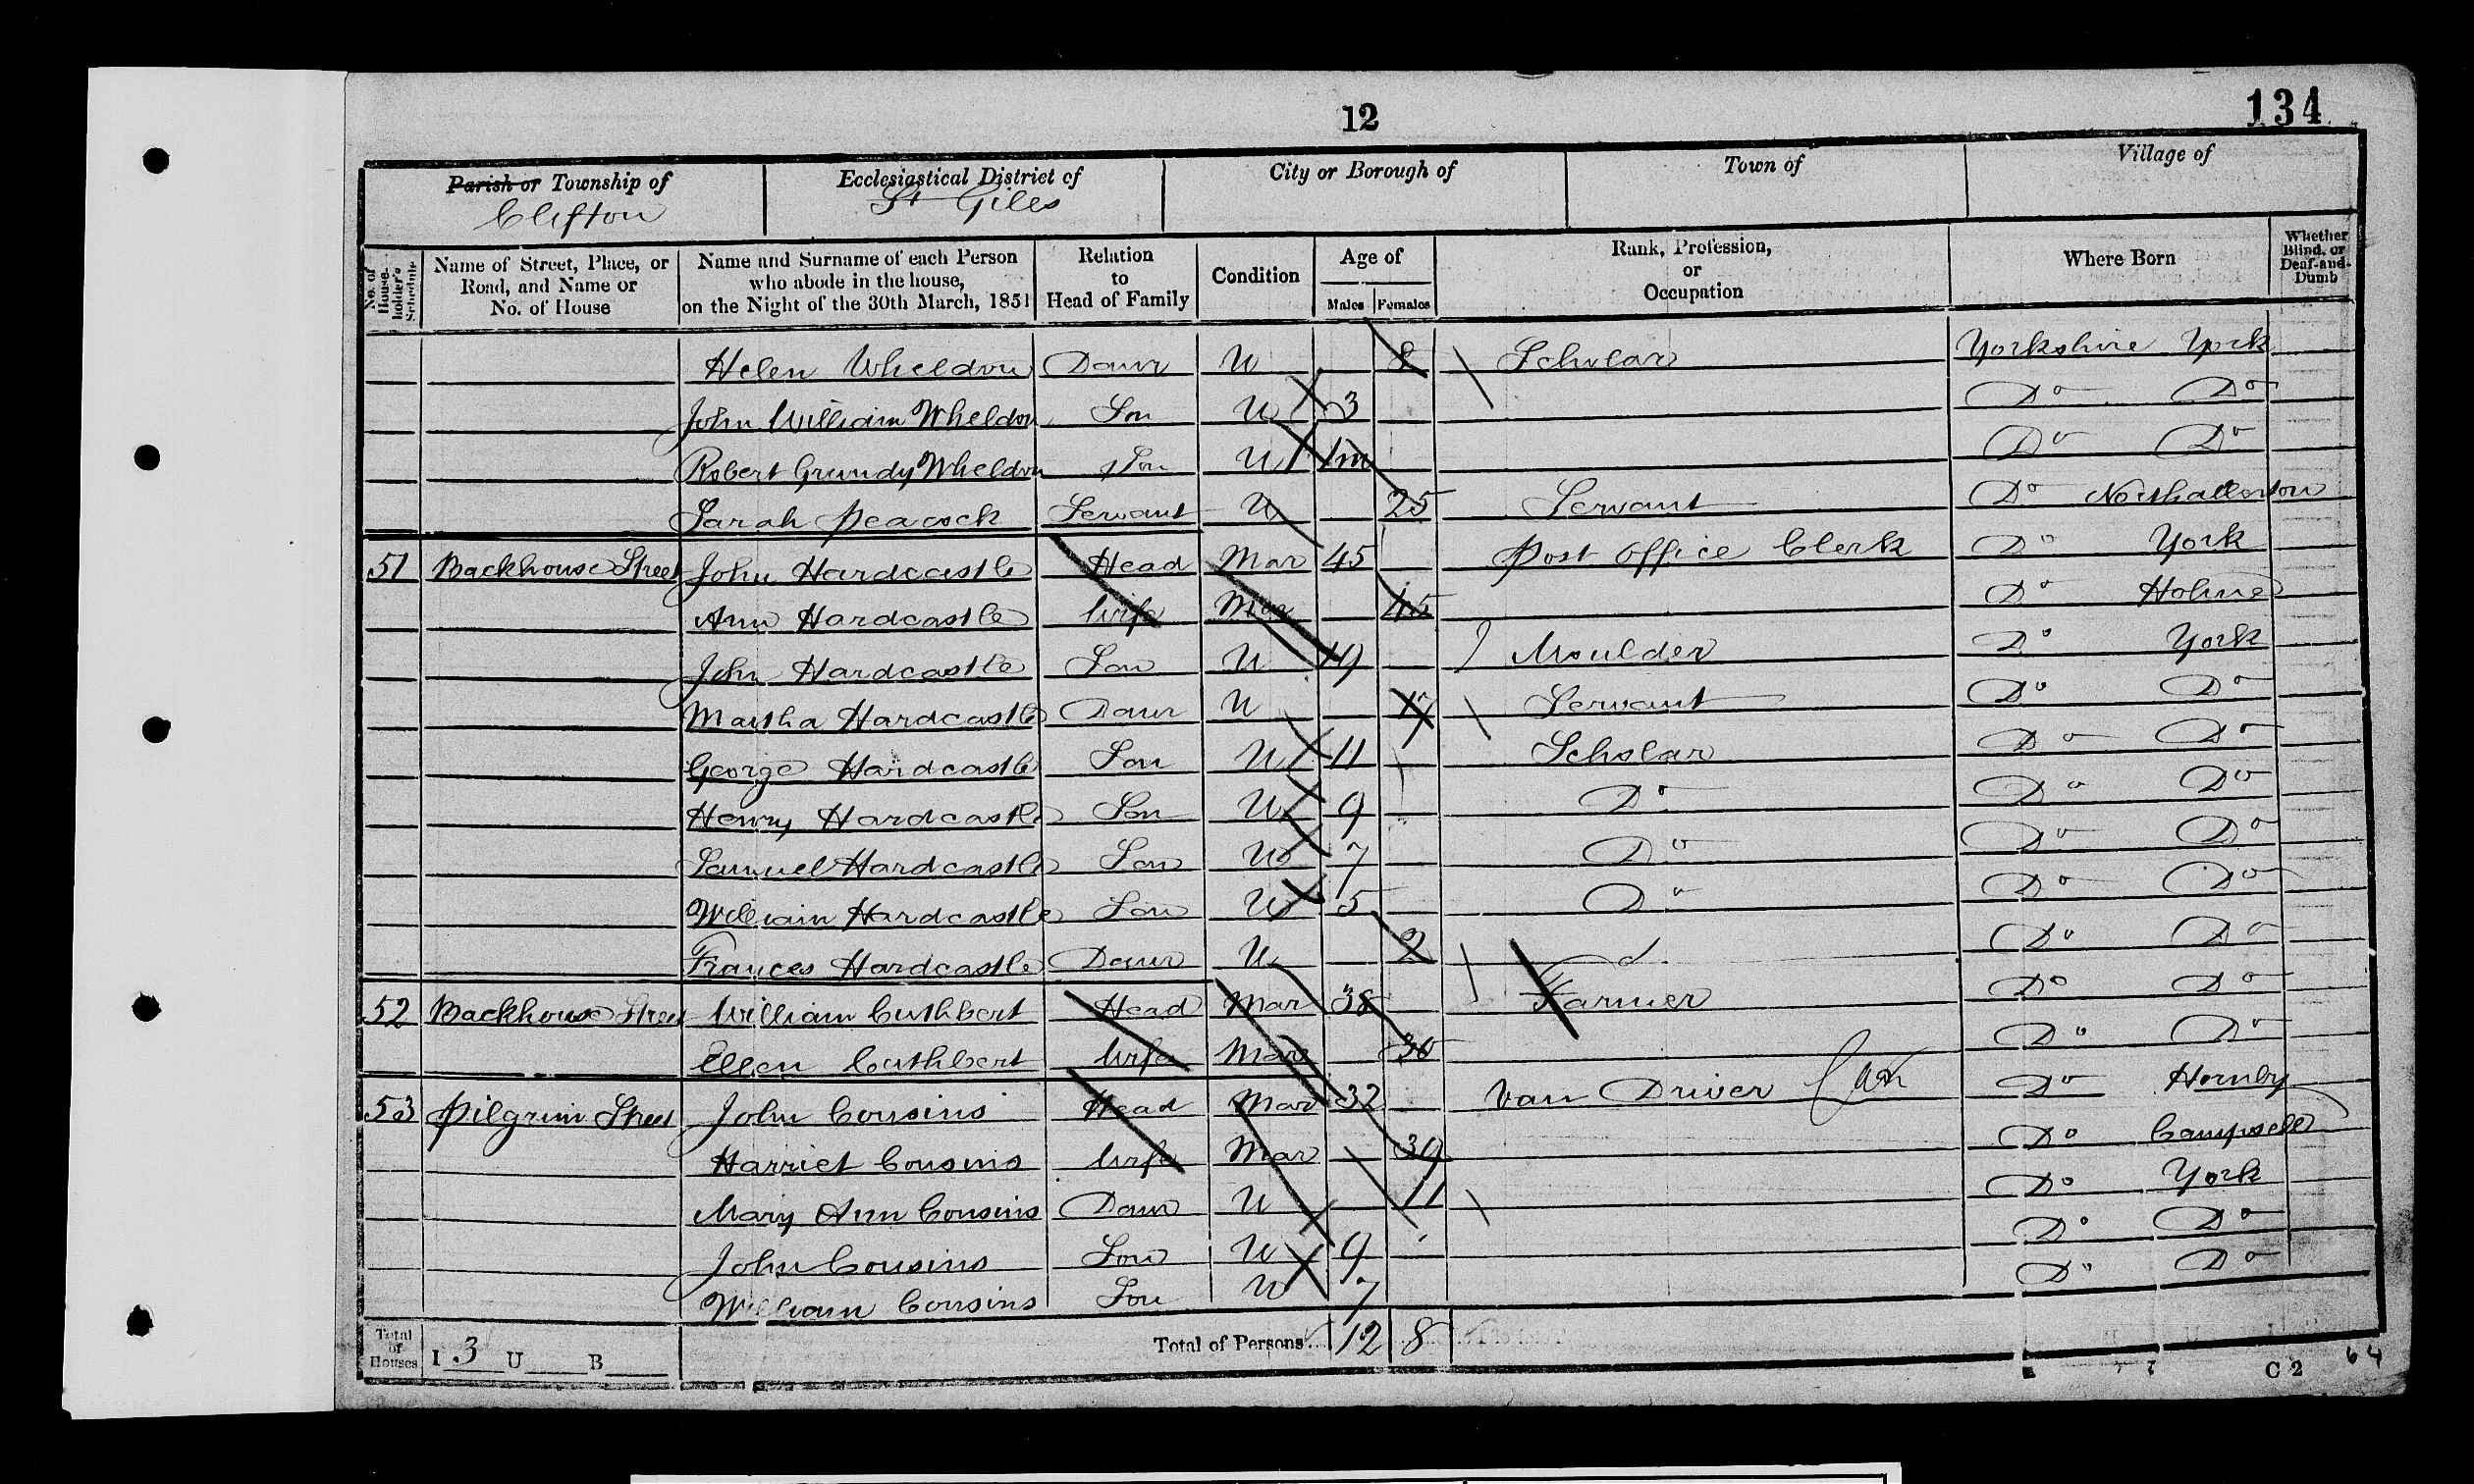 12
134
Parish or Township of Clifton
Ecclesiastical District of St Giles
City or Borough of
Town of
Village of
No. of House-holder's Schedule
Name of Street, Place, or Road, and Name or No. of House
Name and Surname of each Person who abode in the house, on the Night of the 30th March, 1851
Relation to Head of Family
Condition
Age of
Males
Females
Rank, Profession, or Occupation
Where Born
Whether Blind, or Deaf-and-Dumb
Helen Wheldon Daur U 8 Scholar Yorkshire York
John William Wheldon Son U 3 Do Do
Robert Grundy Wheldon Son U 1m Do Do
Sarah Peacock Servant U 25 Servant Do Northallerton
51 Backhouse Street John Hardcastle Head Mar 45 Post Office Clerk Do York
Ann Hardcastle Wife Mar 45 Do Holme
John Hardcastle Son U 19 Moulder Do York
Martha Hardcastle Daur U 17 Servant Do Do
George Hardcastle Son U 11 Scholar Do Do
Henry Hardcastle Son U 9 Do Do Do
Samuel Hardcastle Son U 7 Do Do Do
William Hardcastle Son U 5 Do Do Do
Frances Hardcastle Daur U 2 Do Do
52 Backhouse Street William Cuthbert Head Mar 38 Farmer Do Do
Ellen Cuthbert Wife Mar 30 Do Do
53 Pilgrim Street John Cousins Head Mar 32 Van Driver Do Hornby
Harriet Cousins Wife Mar 39 Do Campsell
Mary Ann Cousins Daur U 11 Do York
John Cousins Son U 9 Do Do
William Cousins Son U 7 Do Do
Total of Houses I 3 U B
Total of Persons 12 8
C 2
64